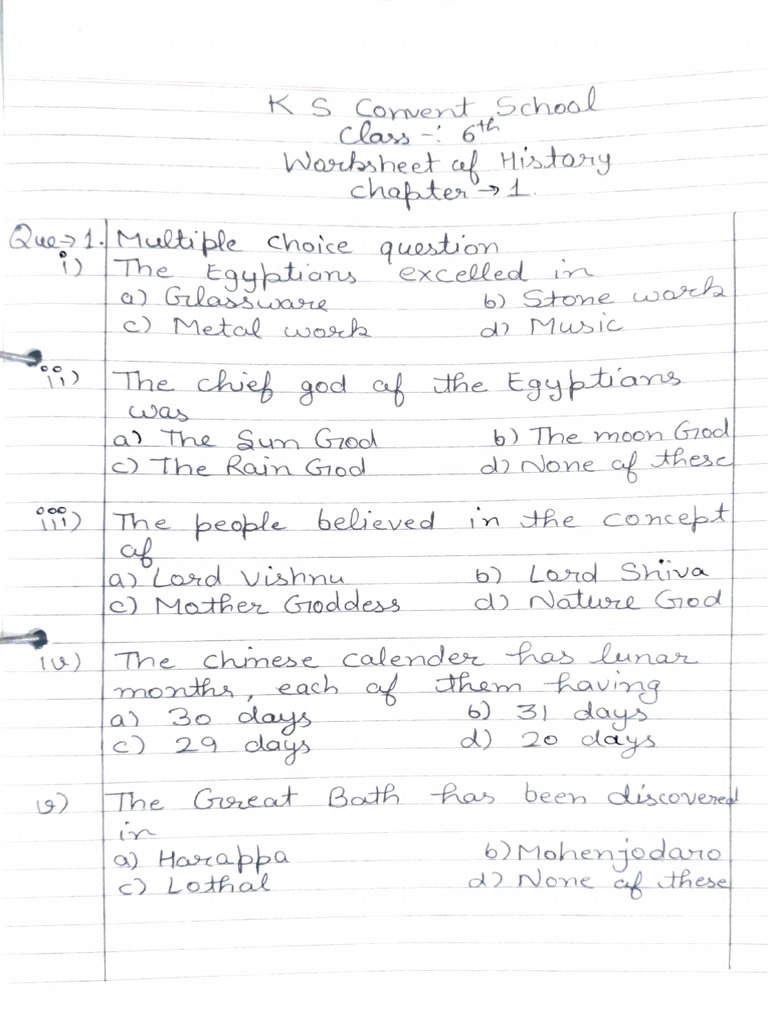 K S Convent School
Class -: 6th
Worksheet of History
chapter → 1.
Que → 1. Multiple choice question
i) The Egyptians excelled in
a) Glassware b) Stone work
c) Metal work d) Music
ii) The chief god of the Egyptians
was
a) The Sun God b) The moon God
c) The Rain God d) None of these
iii) The people believed in the concept
of
a) Lord Vishnu b) Lord Shiva
c) Mother Goddess d) Nature God
iv) The chinese calender has lunar
months, each of them having
a) 30 days b) 31 days
c) 29 days d) 20 days
v) The Great Bath has been discovered
in
a) Harappa b) Mohenjodaro
c) Lothal d) None of these